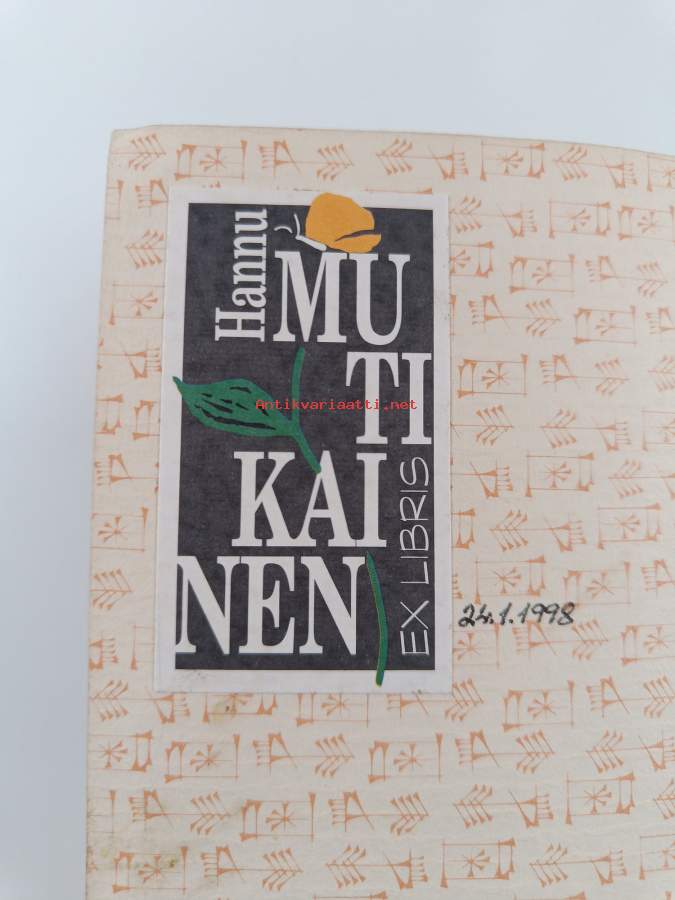 Hannu
MU
TI
KAI
NEN
EX LIBRIS
24.1.1998
Antikvariaatti.net